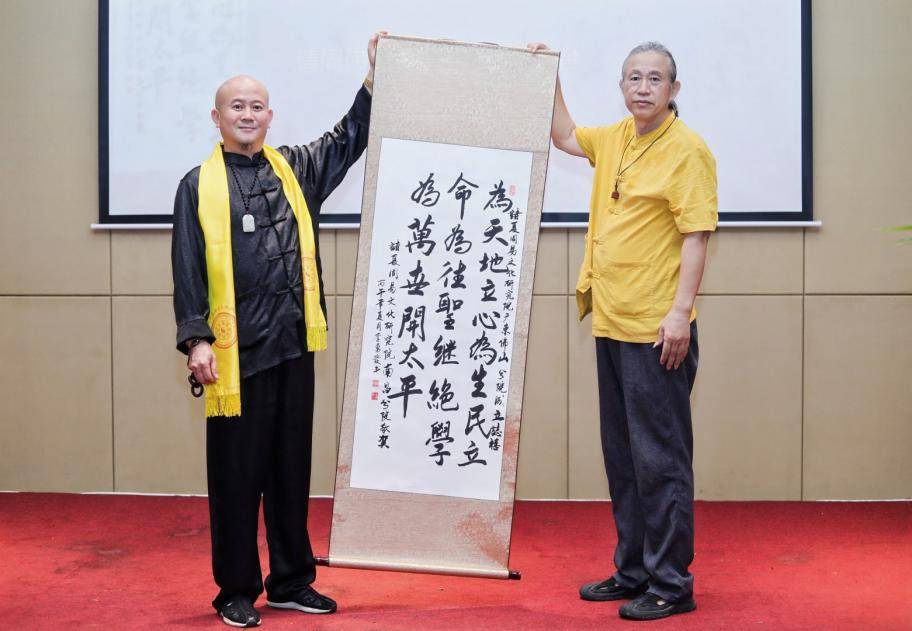 諸夏周易文化研究院广东佛山分院成立誌禧
為天地立心為生民立
命為往聖继絕學
為萬世開太平
諸夏周易文化研究院南昌分院敬贺
丙午年夏月